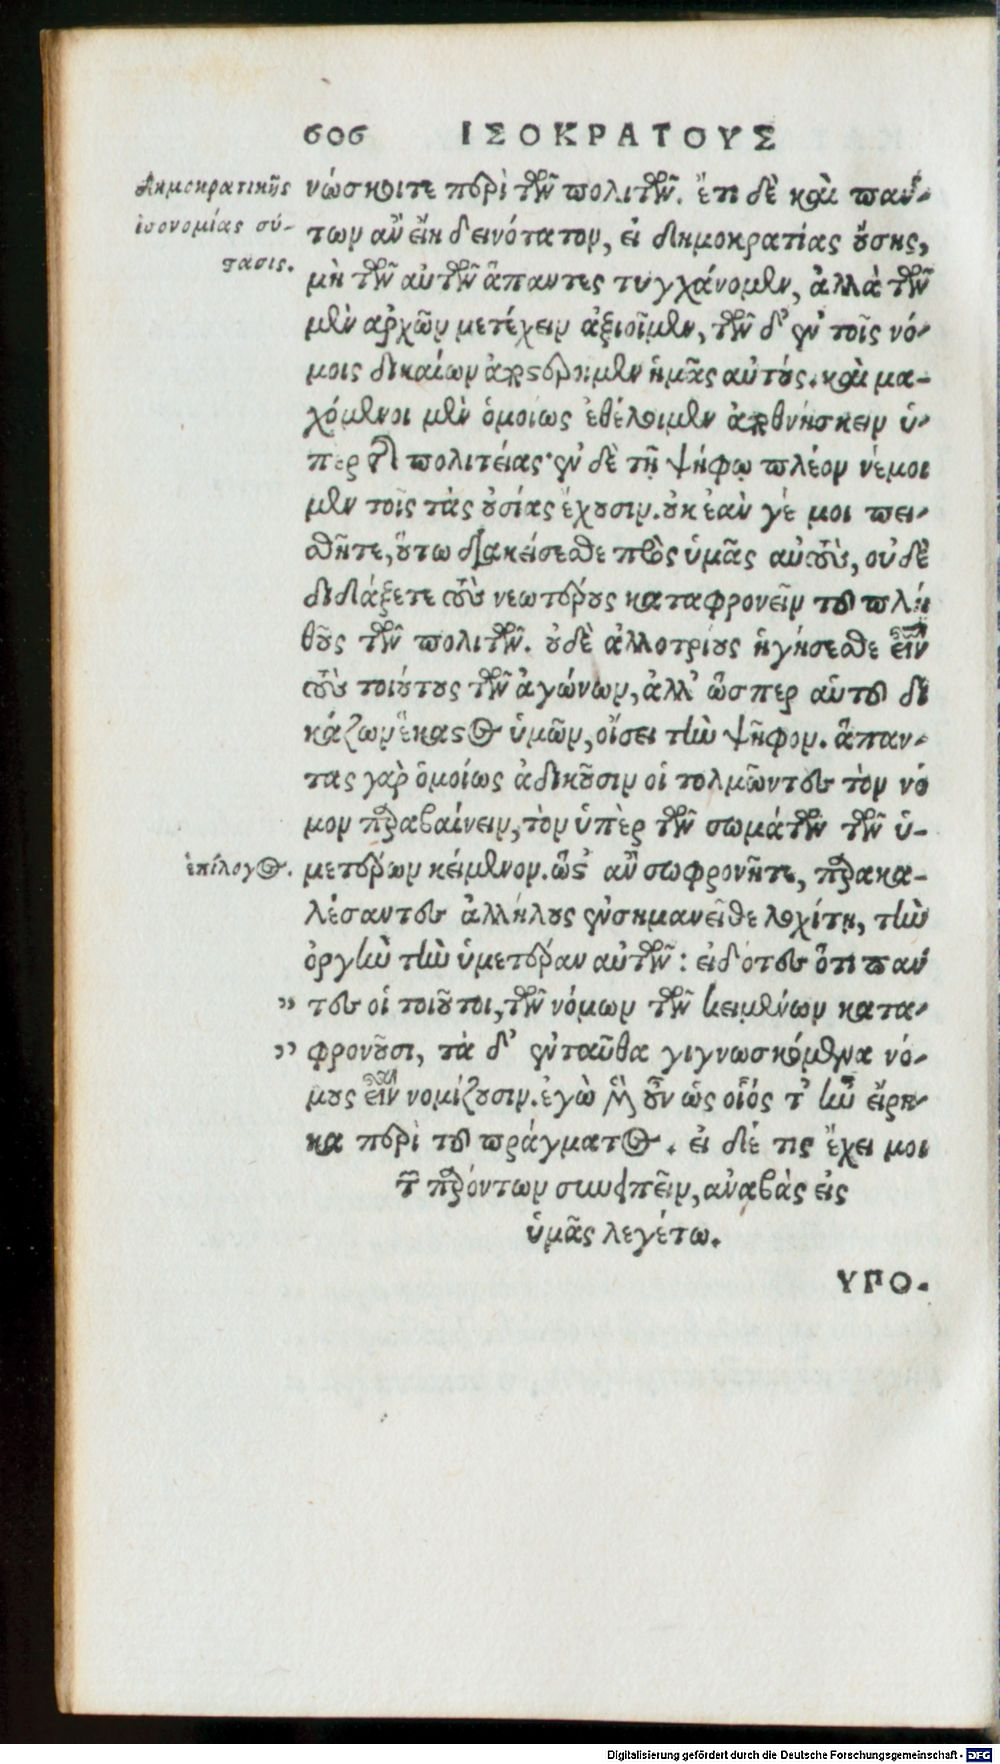 606 ΙΣΟΚΡΑΤΟΥΣ
Δημοκρατικῆς
ἰσονομίας σύ-
στασις.
νώσκοιτε περὶ τῶν πολιτῶν. ἔτι δὲ καὶ πάν-
των ἂν εἴη δεινότατον, εἰ δημοκρατίας οὔσης,
μὴ τῶν αὐτῶν ἅπαντες τυγχάνομεν, ἀλλὰ τῶν
μὲν ἀρχῶν μετέχειν ἀξιοῖμεν, τῶν δ' ἐν τοῖς νό-
μοις δικαίων ἀποστεροῖμεν ἡμᾶς αὐτούς. καὶ μα-
χόμενοι μὲν ὁμοίως ἐθέλοιμεν ἀποθνήσκειν ὑ-
περ τῆς πολιτείας· ἐν δὲ τῇ ψήφῳ πλέον νέμοι
μεν τοῖς τὰς οὐσίας ἔχουσιν. οὐκ ἐὰν γέ μοι πει-
σθῆτε, οὕτω διακείσεσθε πρὸς ὑμᾶς αὐτοὺς, οὐδὲ
διδάξετε τοὺς νεωτέρους καταφρονεῖν τοῦ πλή
θους τῶν πολιτῶν. οὐδὲ ἀλλοτρίους ἡγήσεσθε εἶναι
τοὺς τοιούτους τῶν ἀγώνων, ἀλλ' ὥσπερ αὑτοῦ δι
κάζων ἕκαστος ὑμῶν, οἴσει τὴν ψῆφον. ἅπαν-
τας γὰρ ὁμοίως ἀδικοῦσιν οἱ τολμῶντες τὸν νό
μον παραβαίνειν, τὸν ὑπὲρ τῶν σωμάτων τῶν ὑ-
ἐπίλογος.
μετέρων κείμενον. ὥστ' ἂν σωφρονῆτε, παρακα-
λέσαντες ἀλλήλους ἐνσημανεῖσθε λοχίτῃ, τὴν
ὀργὴν τὴν ὑμετέραν αὐτῶν: εἰδότες ὅτι πάν
” τες οἱ τοιοῦτοι, τῶν νόμων τῶν κειμένων κατα-
” φρονοῦσι, τὰ δ' ἐνταῦθα γιγνωσκόμενα νό-
μους εἶναι νομίζουσιν. ἐγὼ μὲν οὖν ὡς οἷός τ' ἦν εἴρη-
κα περὶ τοῦ πράγματος. εἰ δέ τις ἔχει μοι
τῶν παρόντων συνειπεῖν, ἀναβὰς εἰς
ὑμᾶς λεγέτω.
ΥΠΟ.
Digitalisierung gefördert durch die Deutsche Forschungsgemeinschaft - DFG